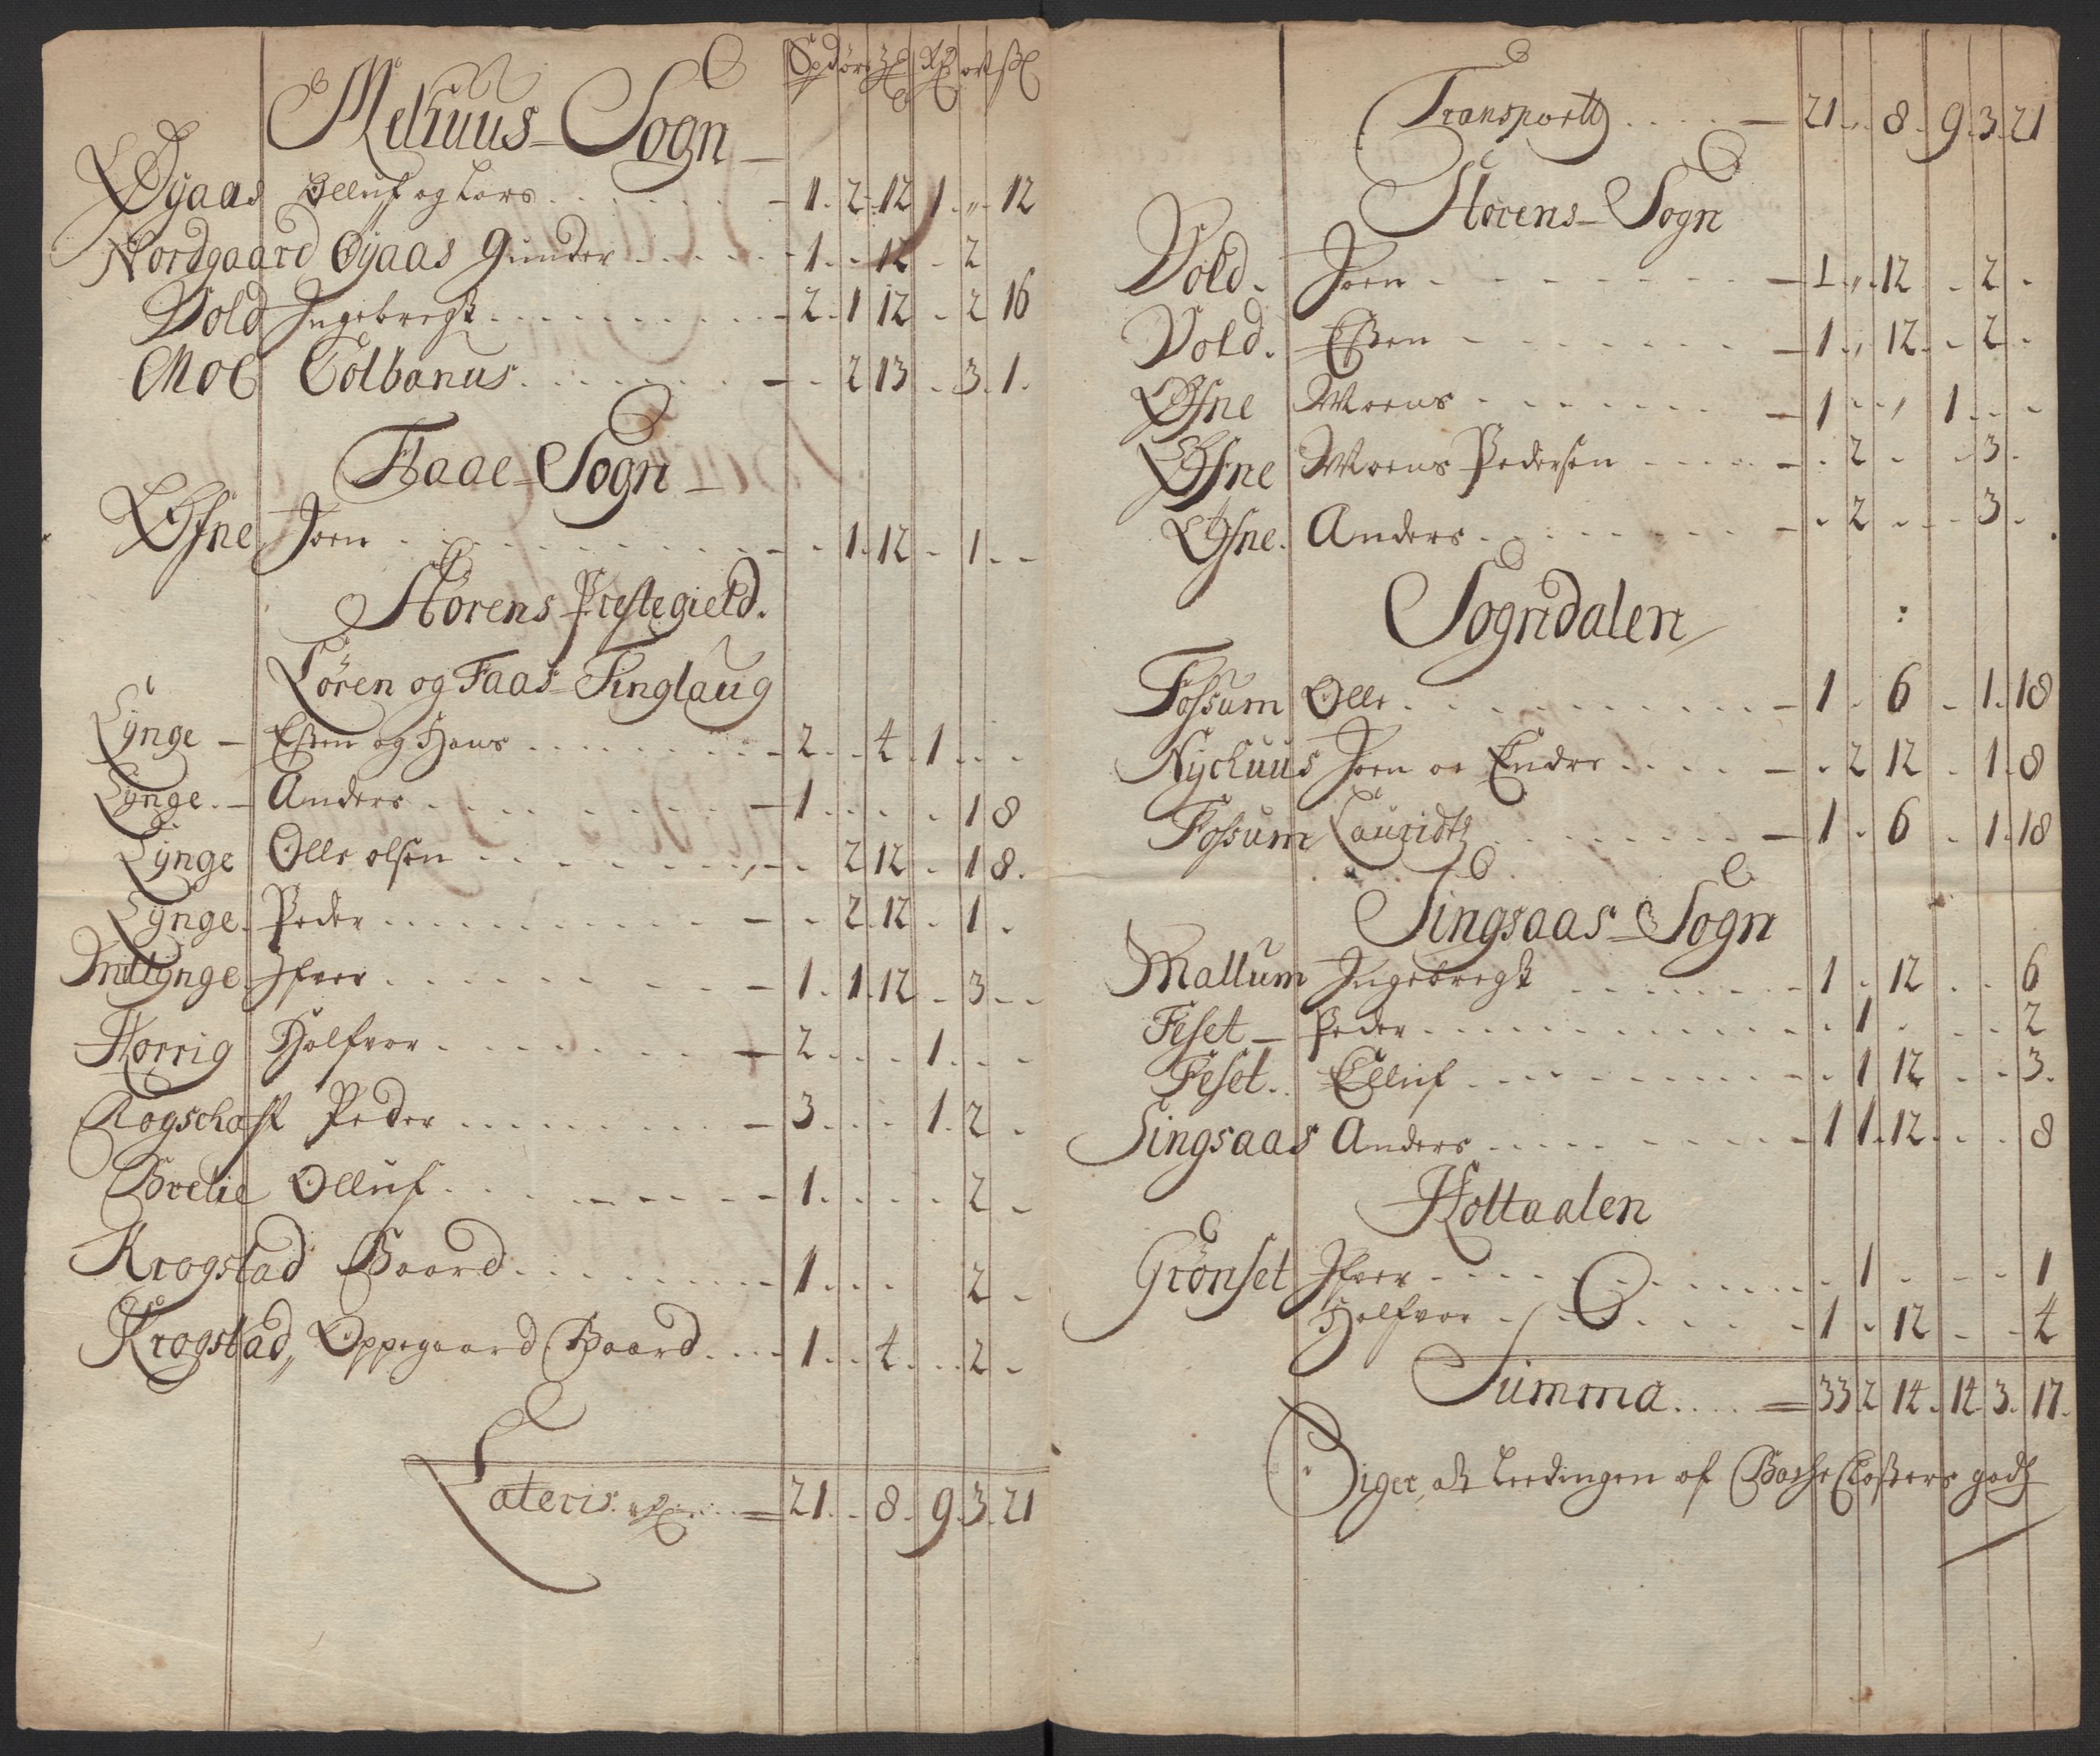 Melhuus Sogn
Øyaas Olluf og Lars 1 2 12 1 " 12
Nordgaard Øyaas Gunder 1 - 12 - 2
Vold Ingebregt 2 1 12 - 2 16
Moe Tolbanus - 2 13 - 3 1
Flaae Sogn
Øfne Joen - 1 12 - 1 - -
Störens Prestegield.
Sören og Faas Tinglaug
Lynge - Esten og Hans 2 - 4 1 - -
Lynge - Anders 1 - - - 1 8
Lynge Olle olsen - 2 12 - 1 8
Lynge Peder - 2 12 - 1 -
Indlynge Ifver 1 1 12 - 3 - -
Horrig Halfvor 2 - - 1 - -
Rogschaft Peder 3 - - 1 2 -
Bretie Olluf 1 - - - 2 -
Krogstad Baard 1 - - 2 -
Krogstad, Oppegaard Baard 1 - 4 - 2 -
Lateris 21 - 8 9 3 21
Transportt 21 " 8 9 3 21
Störens Sogn
Vold Joen 1 " 12 - 2 -
Vold. Esten 1 " 12 - 2 -
Øfne Moens 1 - " 1 - -
Øfne Moens Pedersen - 2 - - 3 -
Øfne. Anders - 2 - - 3 -
Sogndalen
Fossum Olle 1 - 6 - 1 18
Nyehuus Joen oc Endre - 2 12 - 1 8
Fossum Lauridtz 1 - 6 - 1 18
Singsaas Sogn
Mallum Ingebregt 1 - 12 - - 6
Feset - Peder - 1 - - - 2
Feset. Elluf - 1 12 - - 3
Singsaas Anders 1 1 12 - - 8
Holtaalen
Grönset Ifver - 1 - - - 1
Halfvor 1 - 12 - - 4
Summa 33 2 14 14 3 17
Leedingen af Closters godz